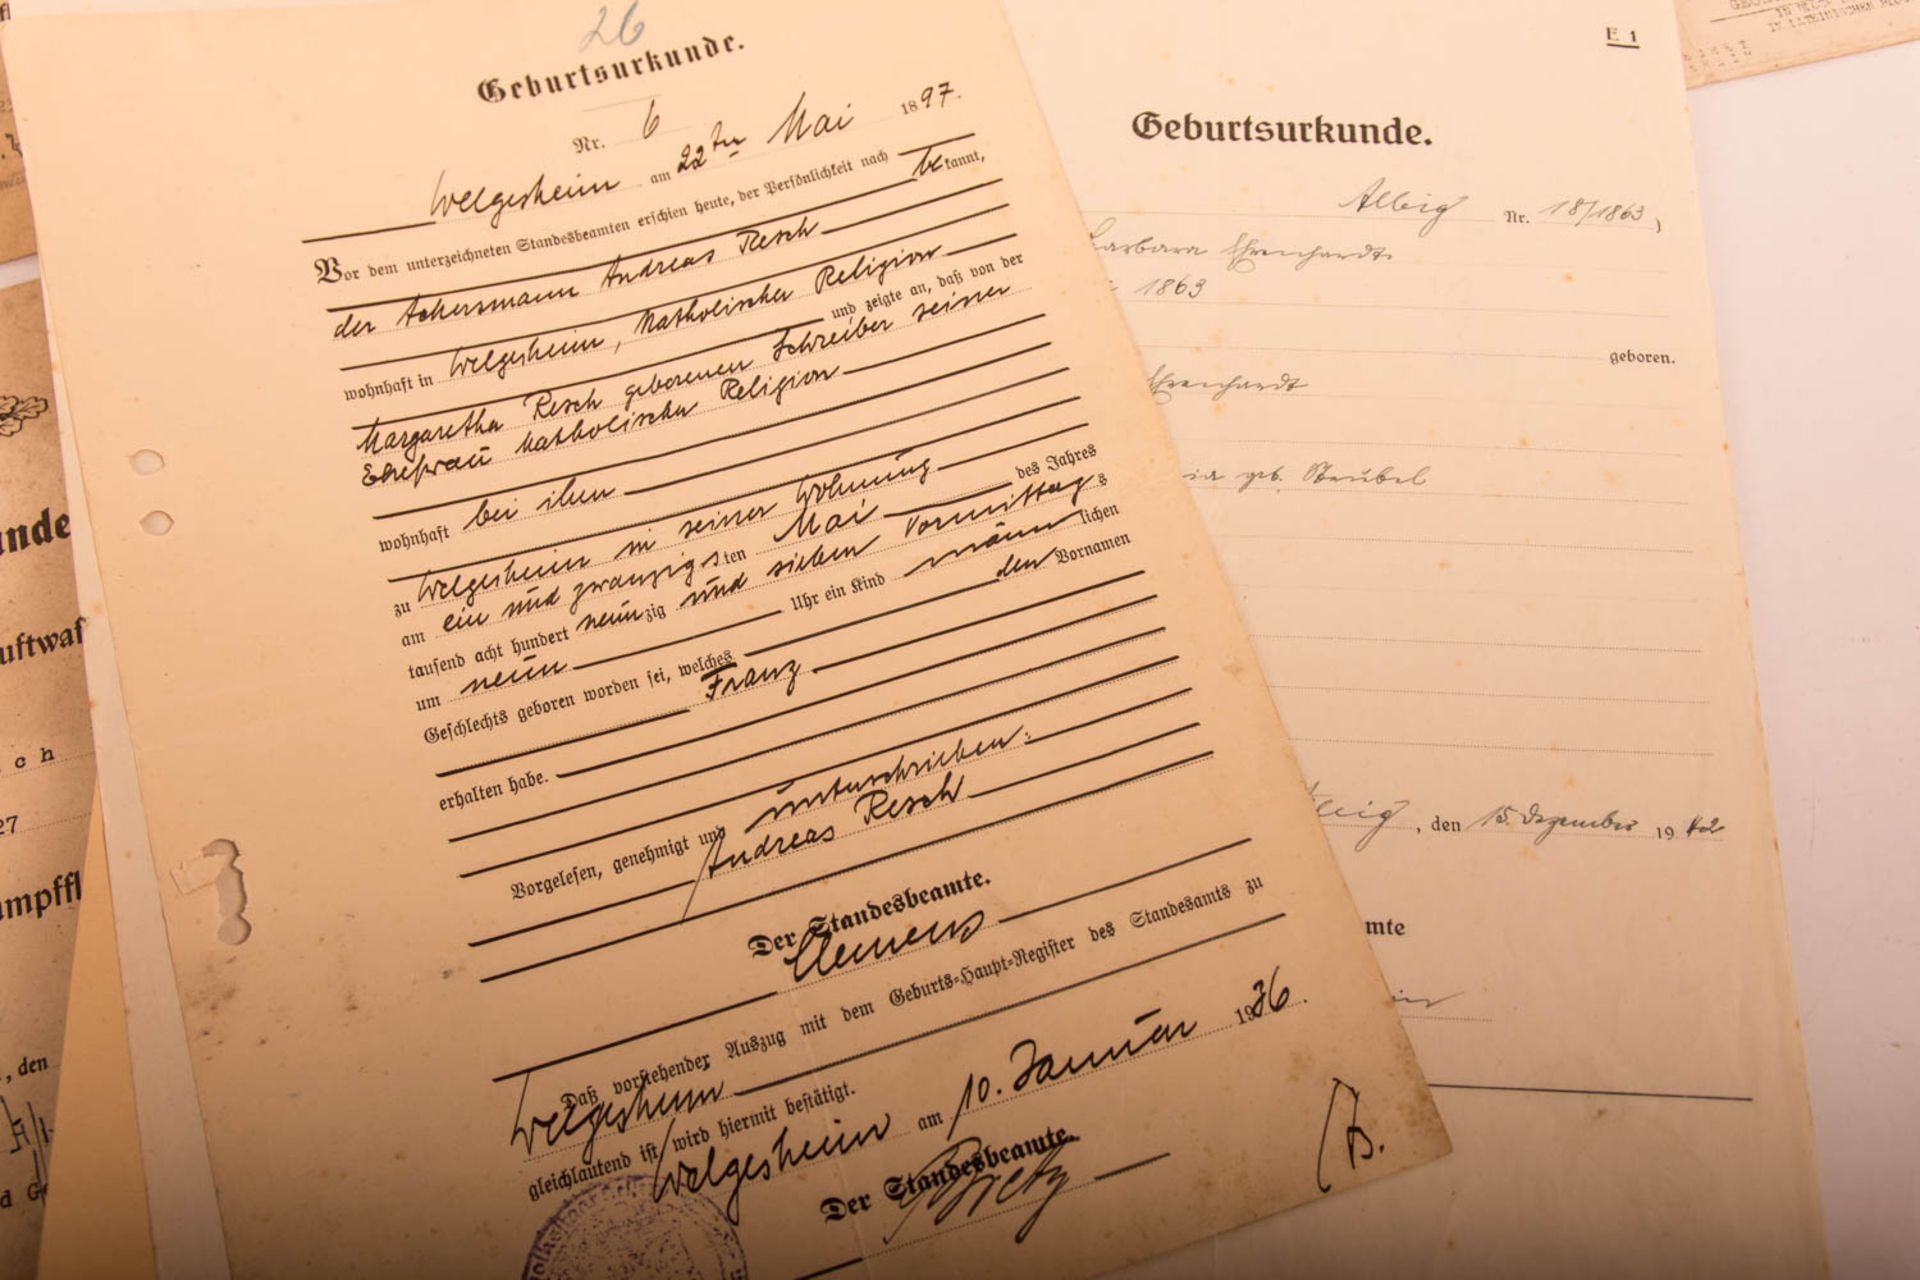 26
Geburtsurkunde.
Nr. 6
Welgesheim am 22ten Mai 1897.
Vor dem unterzeichneten Standesbeamten erschien heute, der Persönlichkeit nach
bekannt,
der Ackersmann Andreas Resch
wohnhaft in Welgesheim, katholischer Religion
und zeigte an, daß von der
Margaretha Resch geborenen Schreiber seiner
Ehefrau katholischer Religion
wohnhaft bei ihm
zu Welgesheim in seiner Wohnung
am ein und zwanzigsten Mai des Jahres
tausend acht hundert neunzig und sieben Vormittags
um neun Uhr ein Kind männlichen
Geschlechts geboren worden sei, welches den Vornamen
Franz
erhalten habe.
Vorgelesen, genehmigt und unterschrieben:
Andreas Resch
Der Standesbeamte.
Clemens
Daß vorstehender Auszug mit dem Geburts-Haupt-Register des Standesamts zu
Welgesheim
gleichlautend ist, wird hiermit bestätigt.
Welgesheim am 10. Januar 1936.
Der Standesbeamte.
E 1
Geburtsurkunde.
Albig Nr. 18/1863)
Barbara Ehrenhardt
1863
geboren.
Ehrenhardt
geb. Steubel
, den 15. Dezember 1942
mte
B.
unde
uftwaf
ch
27
mpffl
, den